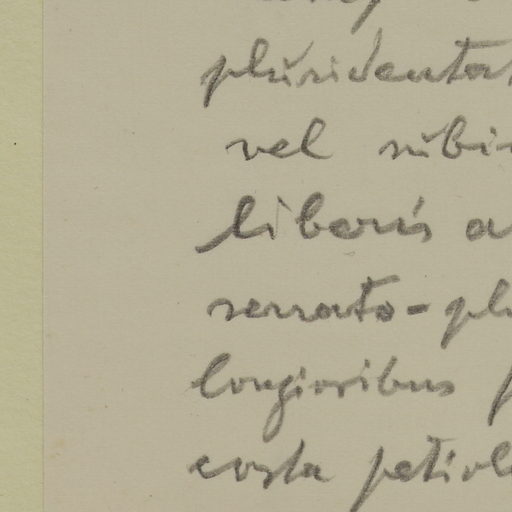 pluridentat
vel subin
liberis a
serrato-pl
longioribus p
costa petiol